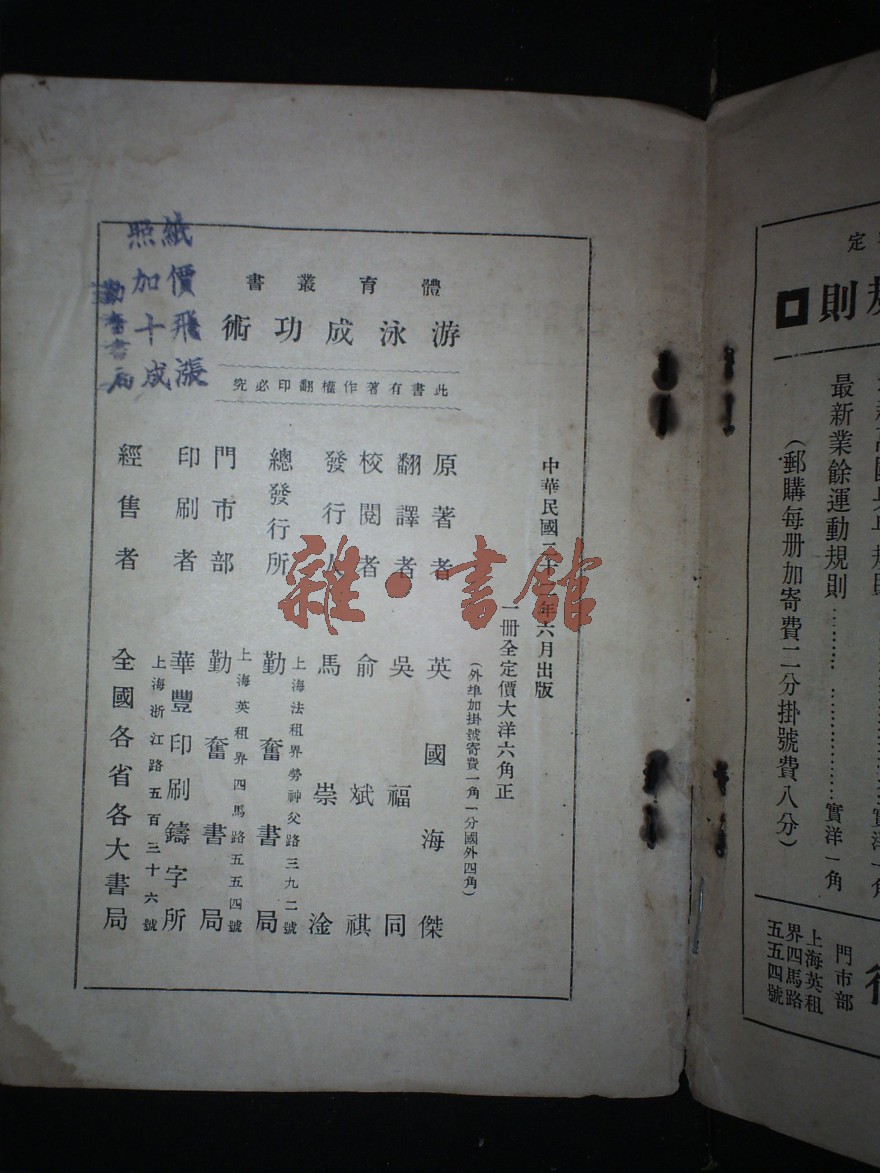 體育叢書
游泳成功術
此書有著作權翻印必究
中華民國二十二年六月出版
一冊全定價大洋六角正
(外埠加掛號寄費一角一分國外四角)
原著者 英國海傑
翻譯者 吳福同
校閱者 俞斌祺
發行人 馬崇淦
上海法租界勞神父路三九二號
總發行所 勤奮書局
上海英租界四馬路五五四號
門市部 勤奮書局
印刷者 華豐印刷鑄字所
上海浙江路五百三十六號
經售者 全國各省各大書局
紙價飛漲
照加十成
書局
雜·書館
定
則
最新業餘運動規則 實洋一角
(郵購每冊加寄費二分掛號費八分)
門市部
上海英租
界四馬路
五五四號